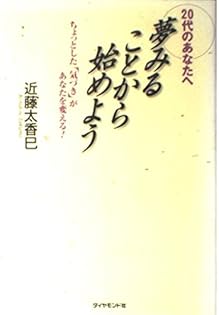 20代のあなたへ
夢みる
ことから
始めよう
ちょっとした「気づき」が
あなたを変える!
近藤太香巳
ダイヤモンド社